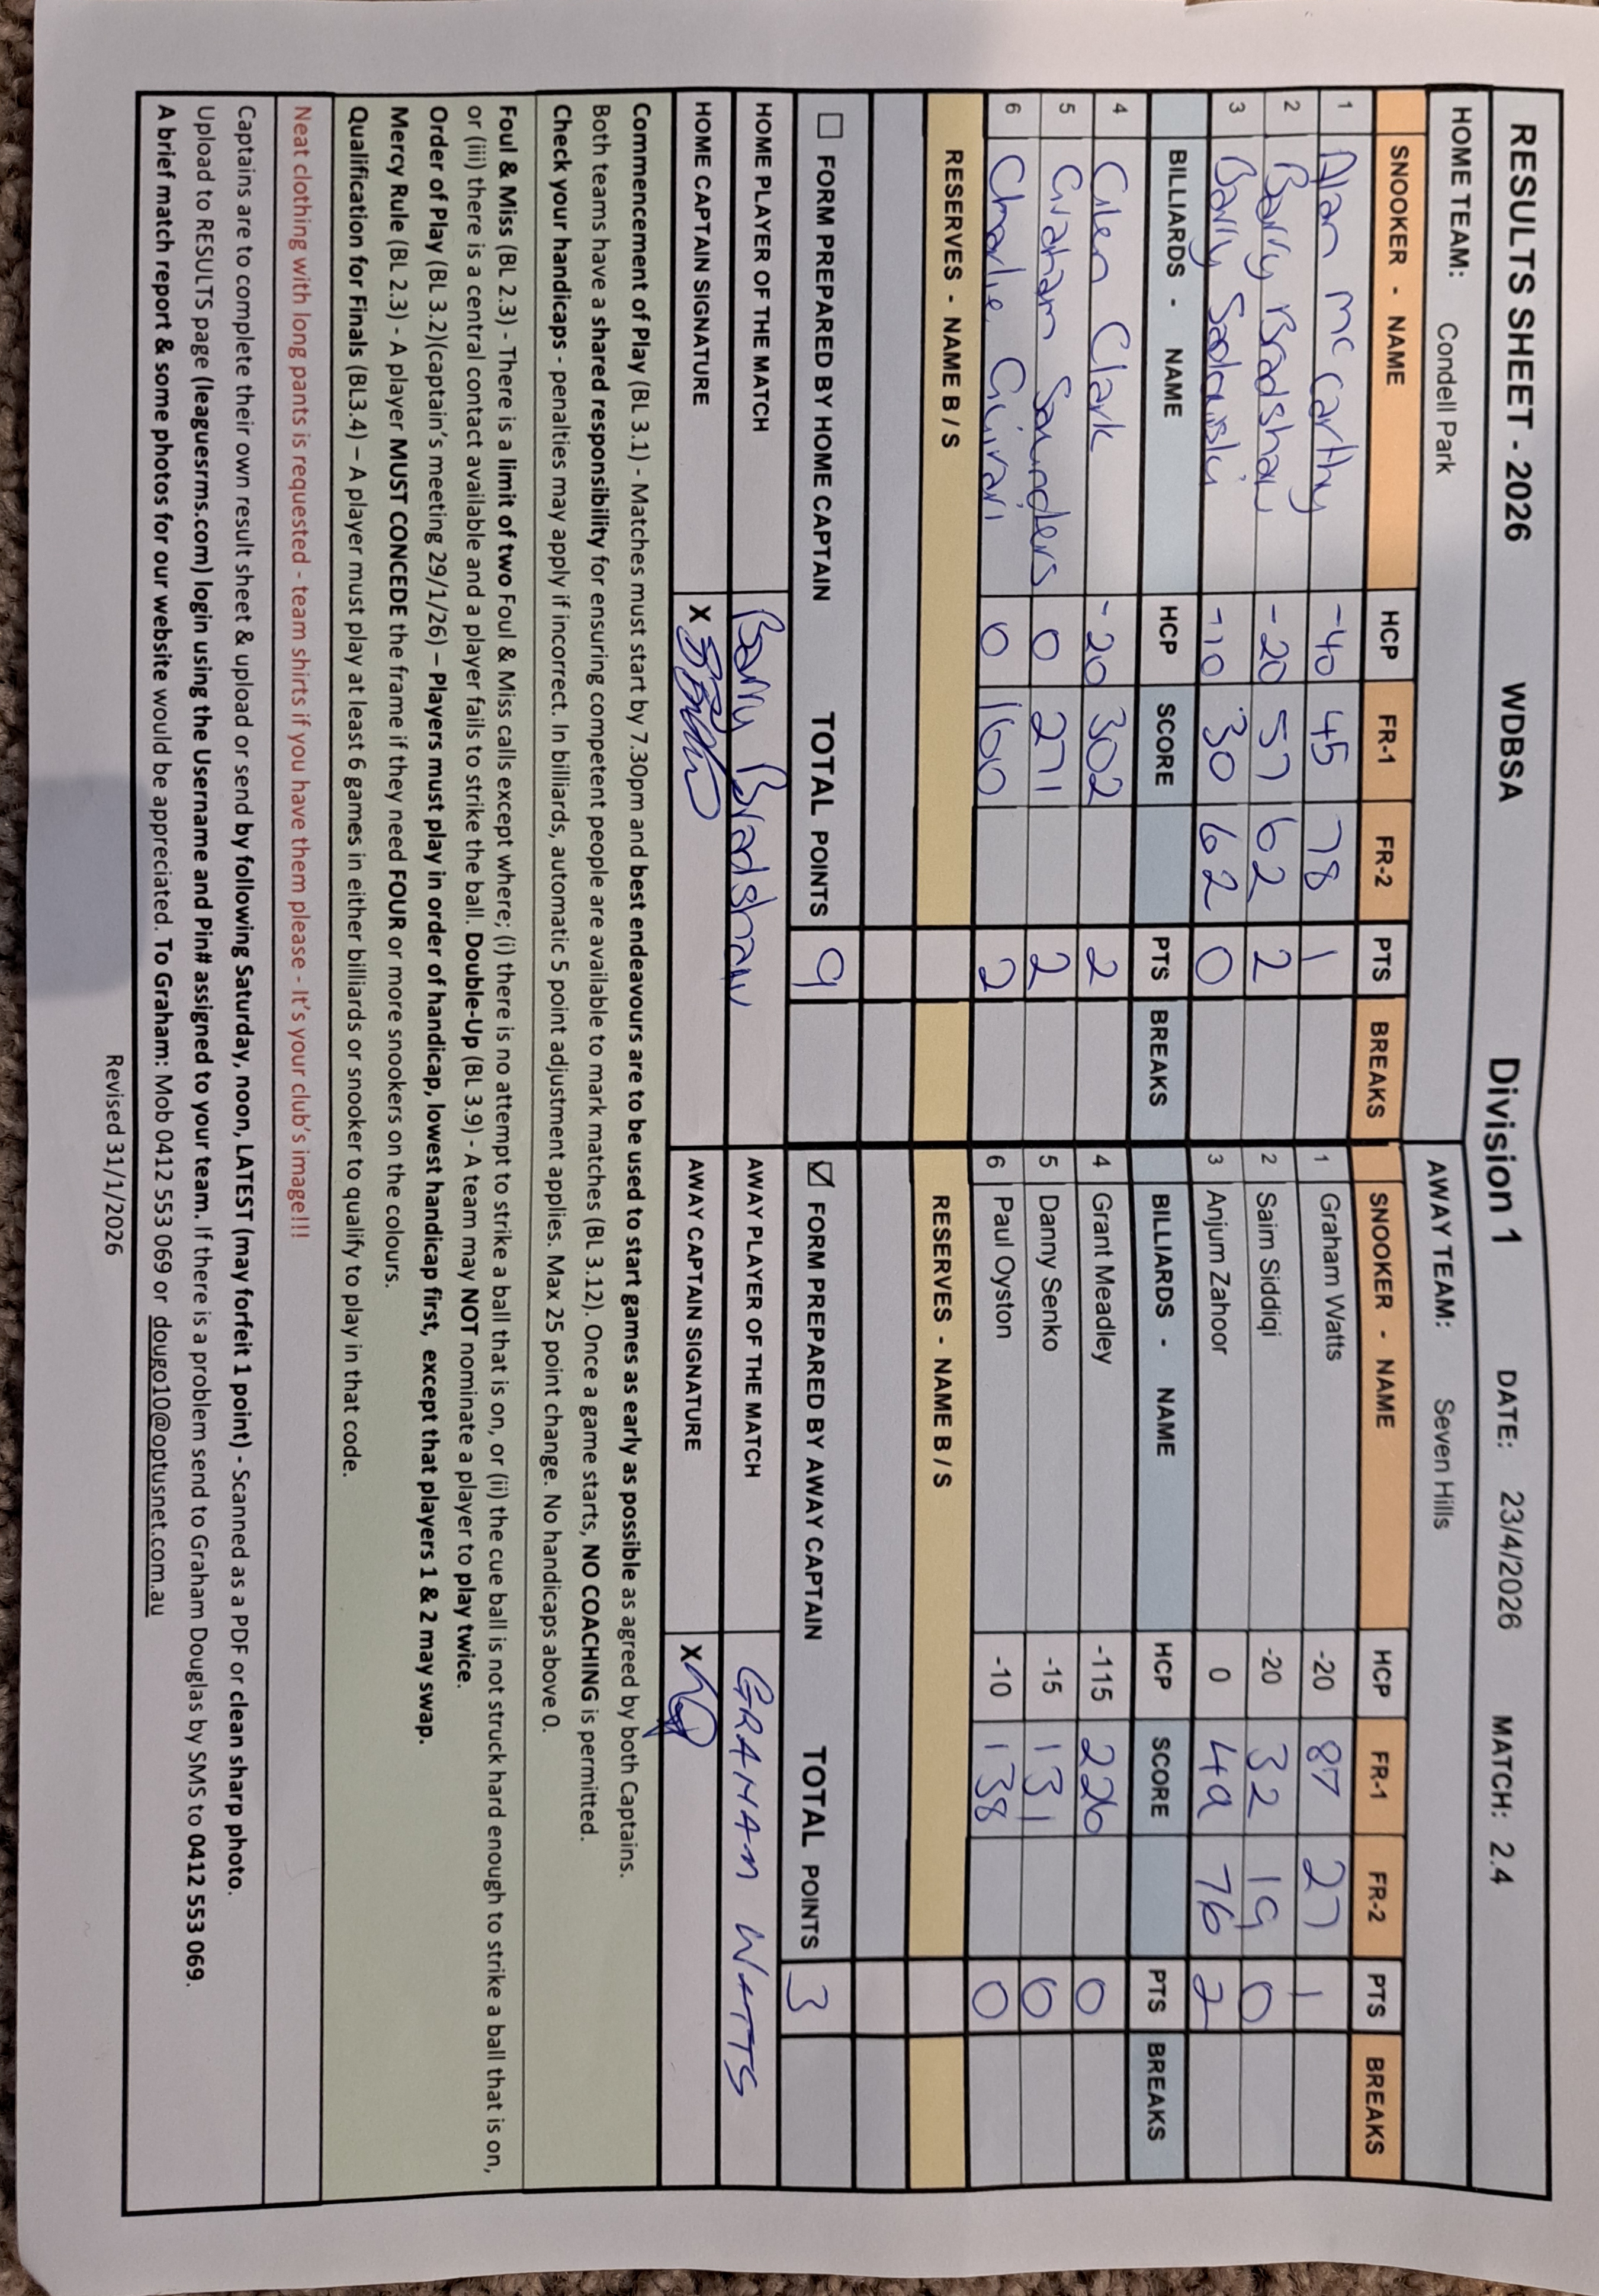 RESULTS SHEET - 2026 WDBSA Division 1 DATE: 23/4/2026 MATCH: 2.4
HOME TEAM: Condell Park AWAY TEAM: Seven Hills
SNOOKER - NAME HCP FR-1 FR-2 PTS BREAKS SNOOKER - NAME HCP FR-1 FR-2 PTS BREAKS
1 Alan McCarthy -40 45 78 1 1 Graham Watts -20 87 27 1
2 Barry Bradshaw -20 57 62 2 2 Saim Siddiqi -20 32 19 0
3 Barry -10 30 62 0 3 Anjum Zahoor 0 49 76 2
BILLIARDS - NAME HCP SCORE PTS BREAKS BILLIARDS - NAME HCP SCORE PTS BREAKS
4 Glen Clark -20 302 2 4 Grant Meadley -115 226 0
5 Graham Saunders 0 271 2 5 Danny Senko -15 131 0
6 Charlie 0 160 2 6 Paul Oyston -10 138 0
RESERVES - NAME B / S RESERVES - NAME B / S
☐ FORM PREPARED BY HOME CAPTAIN TOTAL POINTS 9 ☑ FORM PREPARED BY AWAY CAPTAIN TOTAL POINTS 3
HOME PLAYER OF THE MATCH Barry Bradshaw AWAY PLAYER OF THE MATCH GRAHAM WATTS
HOME CAPTAIN SIGNATURE X AWAY CAPTAIN SIGNATURE X
Commencement of Play (BL 3.1) - Matches must start by 7.30pm and best endeavours are to be used to start games as early as possible as agreed by both Captains.
Both teams have a shared responsibility for ensuring competent people are available to mark matches (BL 3.12). Once a game starts, NO COACHING is permitted.
Check your handicaps - penalties may apply if incorrect. In billiards, automatic 5 point adjustment applies. Max 25 point change. No handicaps above 0.
Foul & Miss (BL 2.3) - There is a limit of two Foul & Miss calls except where; (i) there is no attempt to strike a ball that is on, or (ii) the cue ball is not struck hard enough to strike a ball that is on,
or (iii) there is a central contact available and a player fails to strike the ball. Double-Up (BL 3.9) - A team may NOT nominate a player to play twice.
Order of Play (BL 3.2)(captain's meeting 29/1/26) – Players must play in order of handicap, lowest handicap first, except that players 1 & 2 may swap.
Mercy Rule (BL 2.3) - A player MUST CONCEDE the frame if they need FOUR or more snookers on the colours.
Qualification for Finals (BL3.4) – A player must play at least 6 games in either billiards or snooker to qualify to play in that code.
Neat clothing with long pants is requested - team shirts if you have them please - It's your club's image!!!
Captains are to complete their own result sheet & upload or send by following Saturday, noon, LATEST (may forfeit 1 point) - Scanned as a PDF or clean sharp photo.
Upload to RESULTS page (leaguesrms.com) login using the Username and Pin# assigned to your team. If there is a problem send to Graham Douglas by SMS to 0412 553 069.
A brief match report & some photos for our website would be appreciated. To Graham: Mob 0412 553 069 or dougo10@optusnet.com.au
Revised 31/1/2026